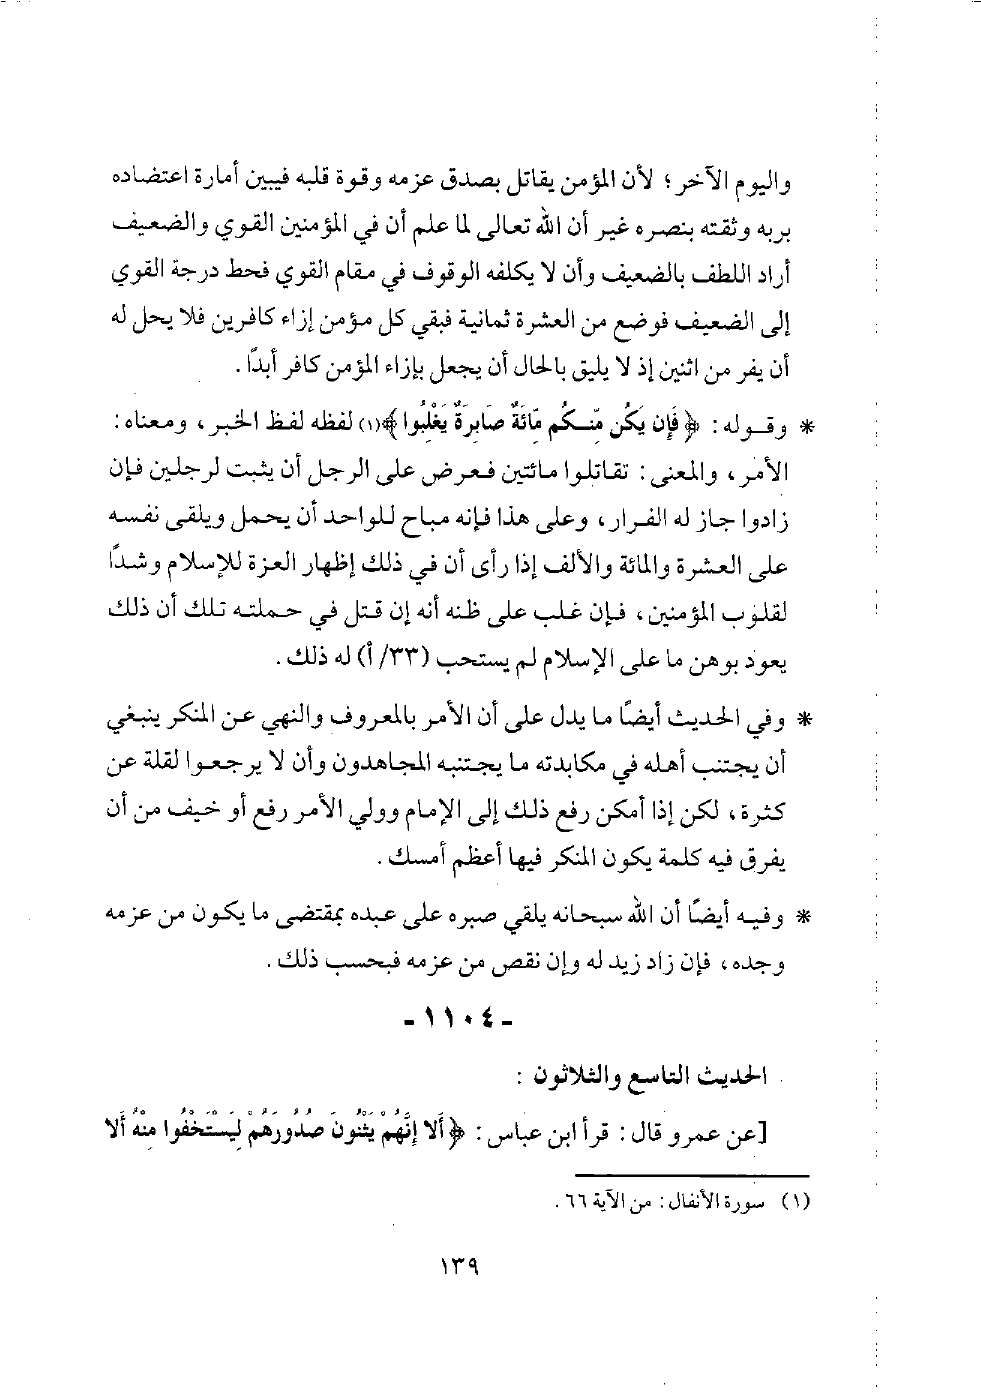 واليوم الآخر ؛ لأن المؤمن يقاتل بصدق عزمه وقوة قلبه فيبين أمارة اعتضاده
بربه وثقته بنصره غير أن الله تعالى لما علم أن في المؤمنين القوي والضعيف
أراد اللطف بالضعيف وأن لا يكلفه الوقوف في مقام القوي فحط درجة القوي
إلى الضعيف فوضع من العشرة ثمانية فبقي كل مؤمن إزاء كافرين فلا يحل له
أن يفر من اثنين إذ لا يليق بالحال أن يجعل بإزاء المؤمن كافر أبدًا .
* وقوله : ﴿ فَإِن يَكُن مِّنكُم مِّائَةٌ صَابِرَةٌ يَغْلِبُوا ﴾(١) لفظه لفظ الخبر ، ومعناه :
الأمر ، والمعنى : تقاتلوا مائتين فعرض على الرجل أن يثبت لرجلين فإن
زادوا جاز له الفرار ، وعلى هذا فإنه مباح للواحد أن يحمل ويلقى نفسه
على العشرة والمائة والألف إذا رأى أن في ذلك إظهار العزة للإسلام وشدًا
لقلوب المؤمنين ، فإن غلب على ظنه أنه إن قتل في حملته تلك أن ذلك
يعود بوهن ما على الإسلام لم يستحب (٣٣/ أ) له ذلك .
* وفي الحديث أيضًا ما يدل على أن الأمر بالمعروف والنهي عن المنكر ينبغي
أن يجتنب أهله في مكابدته ما يجتنبه المجاهدون وأن لا يرجعوا لقلة عن
كثرة ، لكن إذا أمكن رفع ذلك إلى الإمام وولي الأمر رفع أو خيف من أن
يفرق فيه كلمة يكون المنكر فيها أعظم أمسك .
* وفيه أيضًا أن الله سبحانه يلقي صبره على عبده بمقتضى ما يكون من عزمه
وجده ، فإن زاد زيد له وإن نقص من عزمه فبحسب ذلك .
- ١١٠٤ -
الحديث التاسع والثلاثون :
[عن عمرو قال : قرأ ابن عباس : ﴿ أَلا إِنَّهُمْ يَثْنُونَ صُدُورَهُمْ لِيَسْتَخْفُوا مِنْهُ أَلا
(١) سورة الأنفال : من الآية ٦٦ .
١٣٩